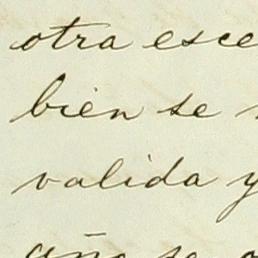 otra esce
bien se
valida y
año se